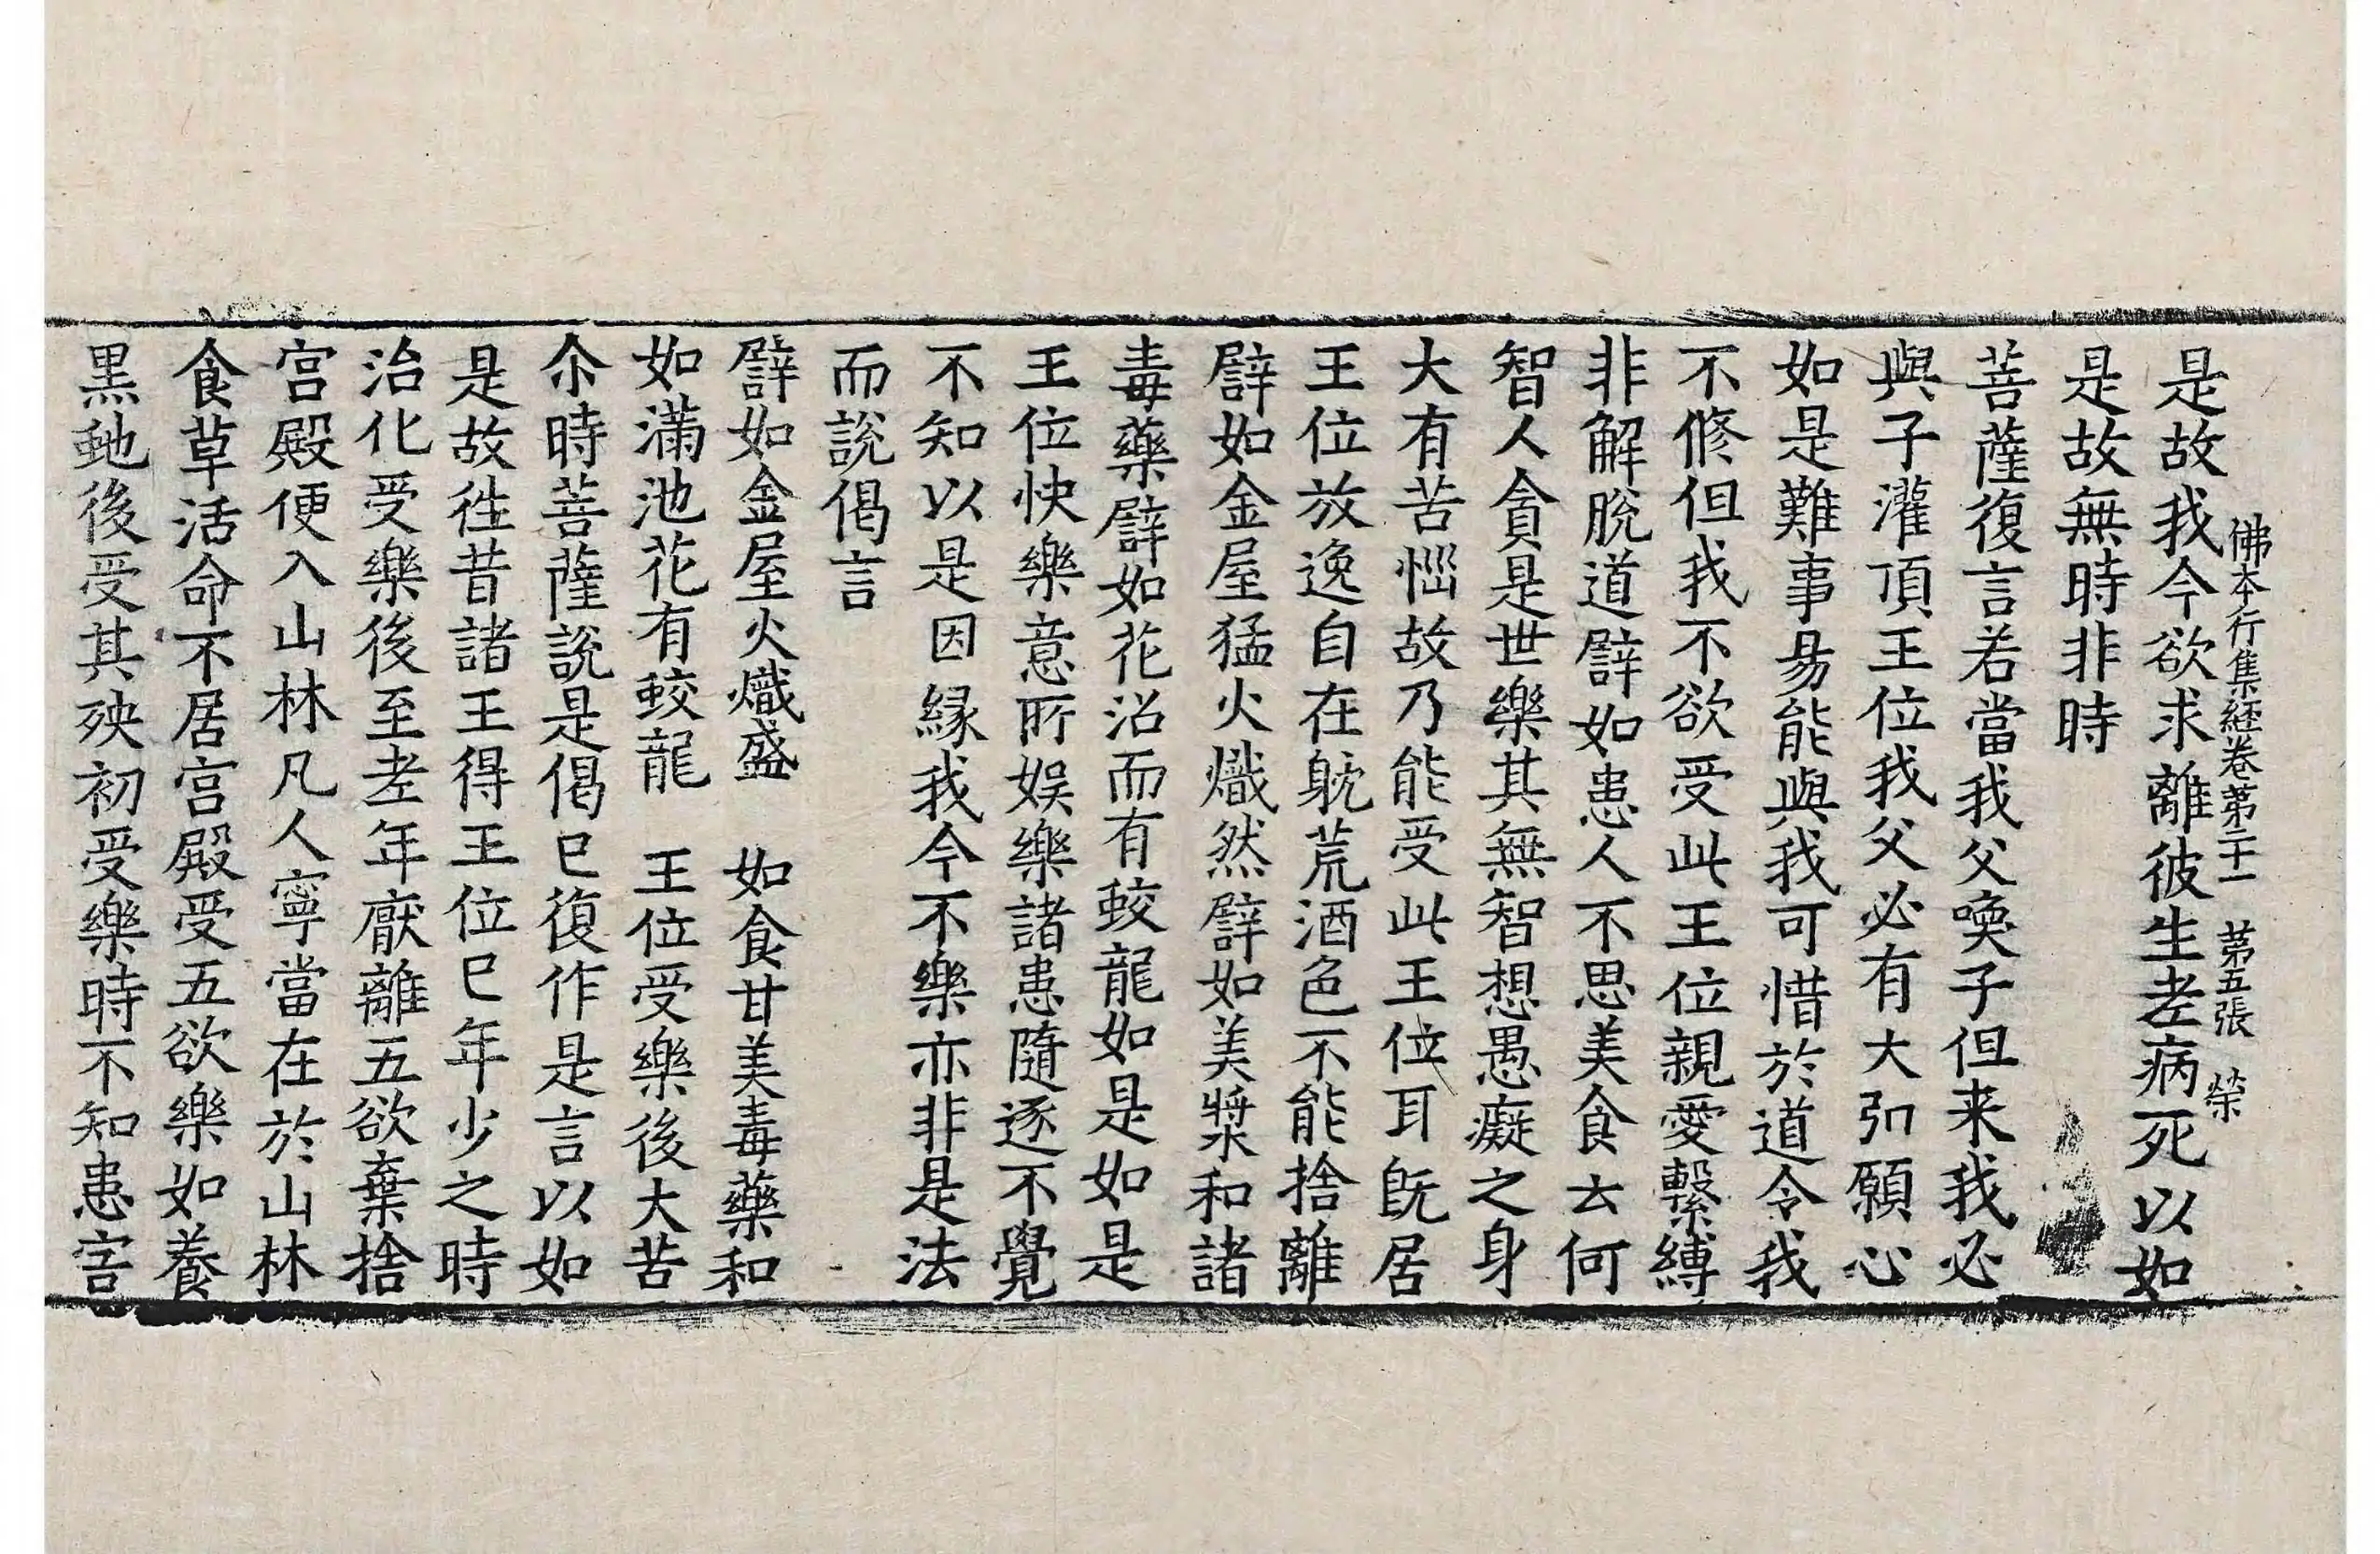 佛本行集經卷第二十一　第五張　榮
是故我今欲求離彼生老病死以如
是故無時非時
菩薩復言若當我父喚子但来我必
與子灌頂王位我父必有大弘願心
如是難事易能與我可惜於道令我
不修但我不欲受此王位親愛繫縛
非解脫道譬如患人不思美食云何
智人貪是世樂其無智想愚癡之身
大有苦惱故乃能受此王位耳旣居
王位放逸自在躭荒酒色不能捨離
譬如金屋猛火熾然譬如美漿和諸
毒藥譬如花沼而有蛟龍如是如是
王位快樂意所娛樂諸患隨逐不覺
不知以是因縁我今不樂亦非是法
而說偈言
譬如金屋火熾盛　如食甘美毒藥和
如滿池花有蛟龍　王位受樂後大苦
尒時菩薩說是偈已復作是言以如
是故徃昔諸王得王位已年少之時
治化受樂後至老年厭離五欲棄捨
宮殿便入山林凡人寧當在於山林
食草活命不居宮殿受五欲樂如養
黒虵後受其殃初受樂時不知患害